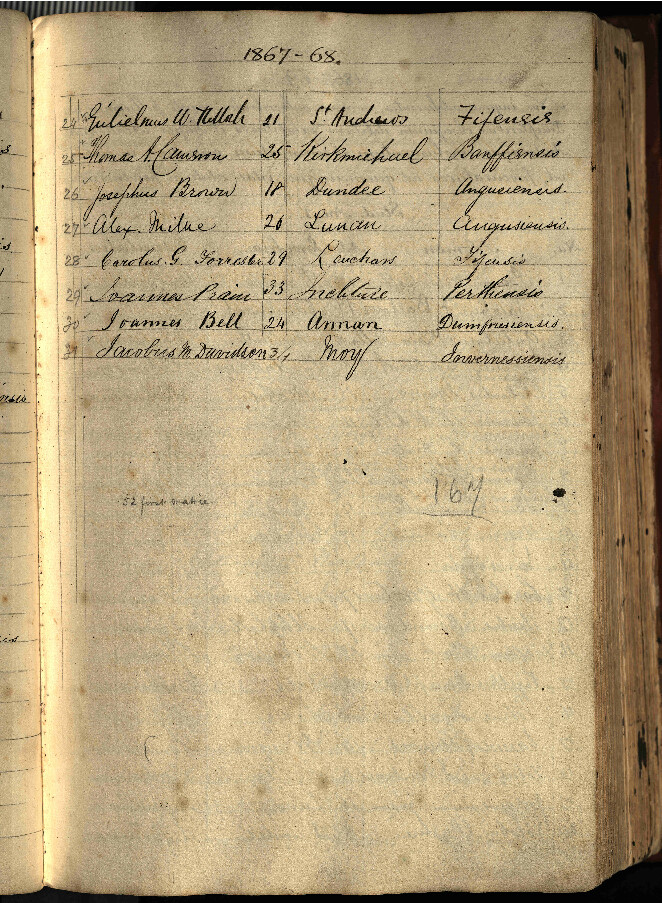 1867-68.
24 Gulielmus W. 21 St Andrews Fifensis
25 Thomas A. Cameron 25 Kirkmichael Banffiensis
26 Josephus Brown 18 Dundee Angusiensis.
27 Alex. Milne 26 Lunan Angusiensis.
28 Carolus. G. Forrester 29 Leuchars Fifensis
29 Joannes Prain 33 Inchture Perthensis
30 Joannes Bell 24 Annan Dumfresiensis.
31 Jacobus M. Davidson Moy Invernessiensis
52 first matric
167